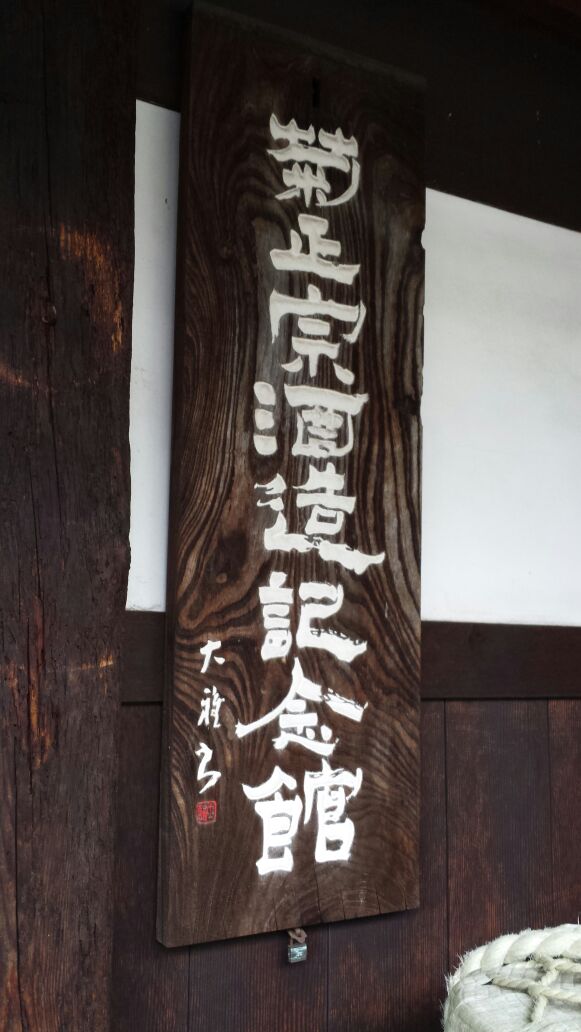 菊正宗酒造記念館
大雅書